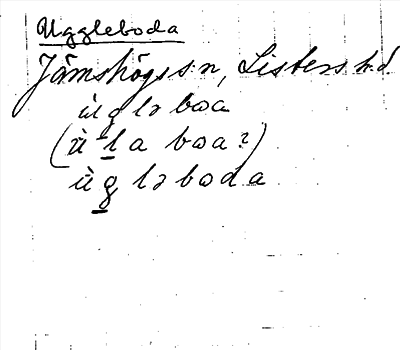 Uggleboda
Jämshögs sn, Listers hd
ùg̲lə bωa
(ù l̲a bωa?)
ùg̲lə bωda